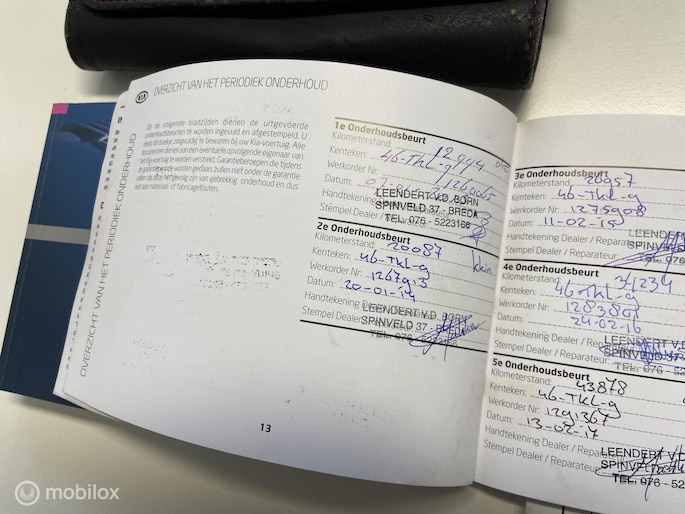 KIA
OVERZICHT VAN HET PERIODIEK ONDERHOUD
OVERZICHT VAN HET PERIODIEK ONDERHOUD
Op de volgende bladzijden dienen de uitgevoerde
onderhoudsbeurten te worden ingevuld en afgestempeld. U
dient dit boekje zorgvuldig te bewaren bij uw Kia-voertuig. Alle
documenten dienen aan een eventuele opvolgende eigenaar van
het Kia-voertuig te worden verstrekt. Garantieberoepen die tijdens
de garantieperiode worden gedaan, zullen niet onder de garantie
vallen als deze het gevolg zijn van gebrekkig onderhoud en dus
niet aan materiaal- of fabricagefouten.
1e Onderhoudsbeurt
Kilometerstand: 12044
Kenteken: 46-TKL-9
Werkorder Nr:
Datum:
LEENDERT V.D. BORN
Handtekening
SPINVELD 37, BREDA
Stempel Dealer / Reparateur:
TEL. 076 - 5223166
2e Onderhoudsbeurt
Kilometerstand: 20087 klein
Kenteken: 46-TKL-g
Werkorder Nr: 1267913
Datum: 20-01-14
LEENDERT V.D. BORN
Handtekening Dealer
SPINVELD 37 - BREDA
Stempel Dealer / Reparateur
TEL. 076
13
3e Onderhoudsbeurt
Kilometerstand: 20957
Kenteken: 46-TKL-g
Werkorder Nr: 1275908
Datum: 11-02-15
LEENDERT V.
Handtekening Dealer / Reparateur
SPINVEL
Stempel Dealer / Reparateur:
TEL. 076
4e Onderhoudsbeurt
Kilometerstand: 34234
Kenteken: 46-TKL-g
Werkorder Nr: 1283801
Datum: 24-02-16
LEENDERT V.D
Handtekening Dealer / Reparateur
SPINVELD
Stempel Dealer / Reparateur:
TEL. 076
5e Onderhoudsbeurt
Kilometerstand: 43878
Kenteken: 46-TKL-g
Werkorder Nr: 1291367
Datum: 13-02-17
Handtekening Dealer / Reparateur
LEENDERT V.D
Stempel Dealer / Reparateur:
SPINVELD
TEL. 076 - 522
mobilox